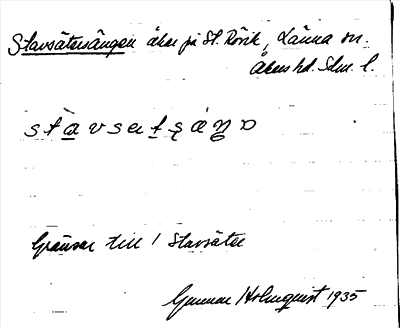 Stavsätersängen åker på St. Rörik, Länna sn.
Åkers hd. Sdm. l.
stavsatsaŋɷ
Gränsar till / Stavsäter
Gunnar Holmquist 1935